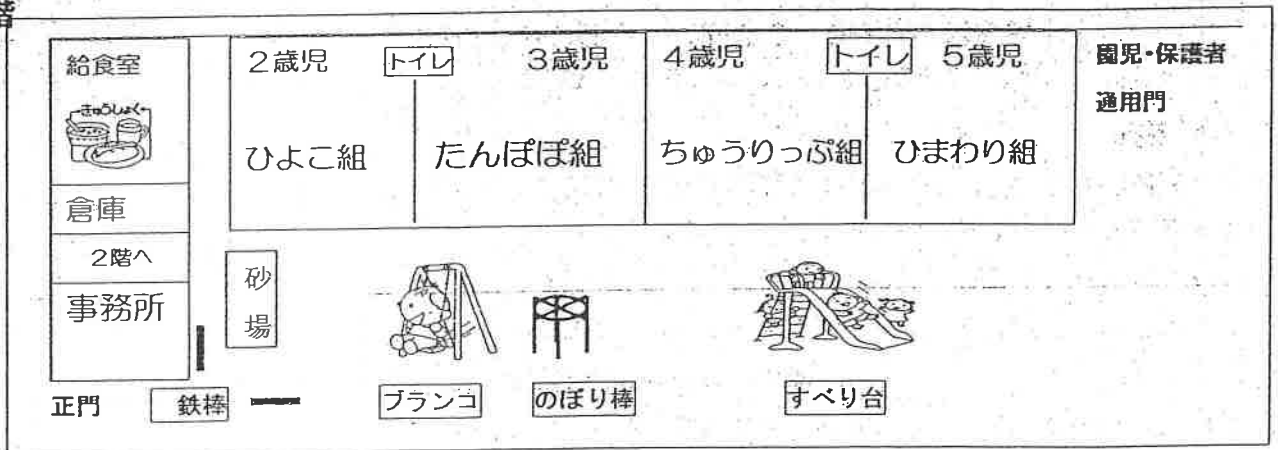 階
給食室
きゅうしょく
倉庫
2階へ
事務所
2歳児
トイレ
3歳児
ひよこ組
たんぽぽ組
4歳児
トイレ
5歳児
ちゅうりっぷ組
ひまわり組
園児・保護者
通用門
砂
場
正門
鉄棒
ブランコ
のぼり棒
すべり台